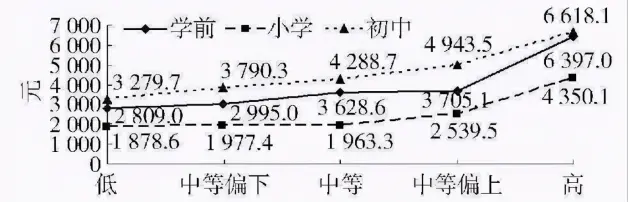 学前 小学 初中
元
7 000
6 000
5 000
4 000
3 000
2 000
1 000
0
6 618.1
3 279.7 3 790.3 4 288.7 4 943.5
6 397.0
2 809.0 2 995.0 3 628.6 3 705.1
4 350.1
1 878.6 1 977.4 1 963.3 2 539.5
低 中等偏下 中等 中等偏上 高